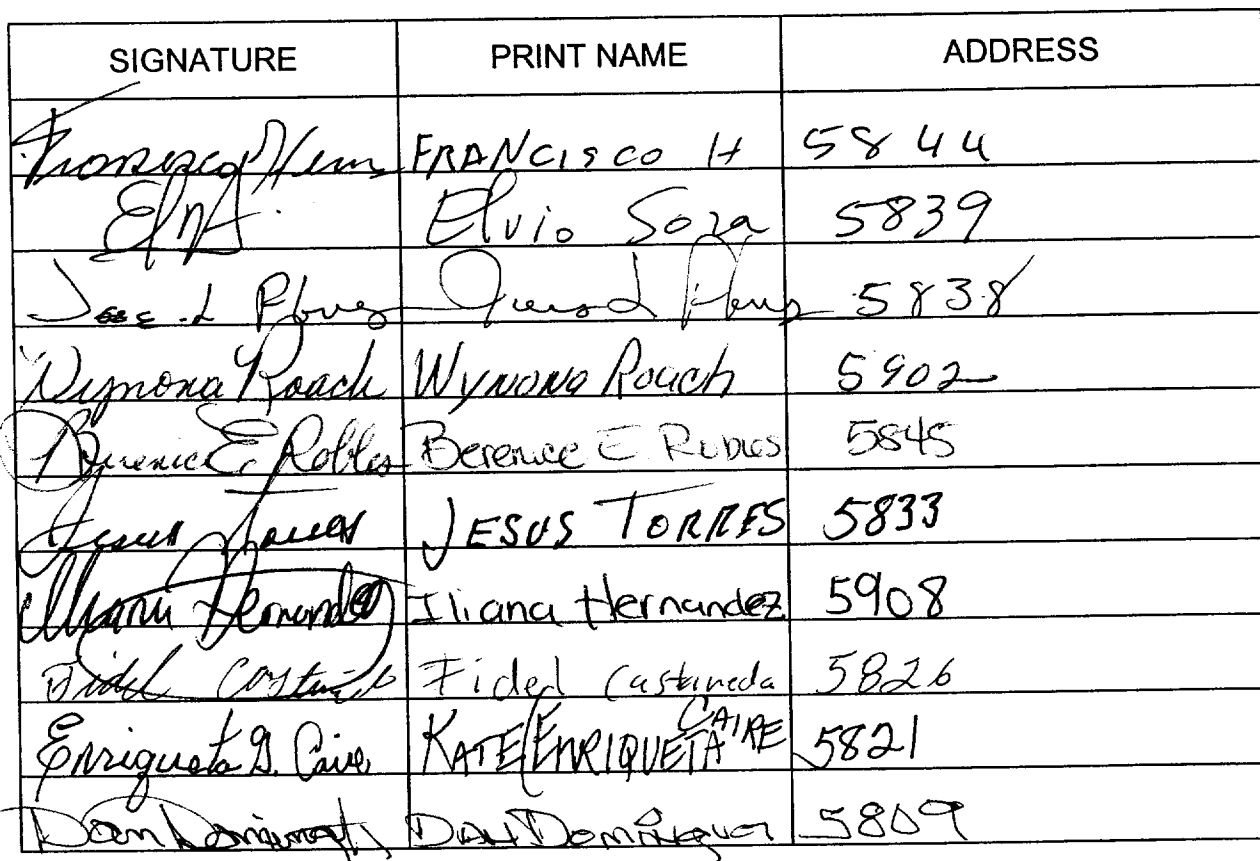 SIGNATURE PRINT NAME ADDRESS
FRANCISCO H 5844
Elvio Soza 5839
Jose L 5838
Wynona Roach Wynona Roach 5902
Berenice E. Robles Berenice E Robles 5845
Jesus Torres JESUS TORRES 5833
Iliana Hernandez Iliana Hernandez 5908
Fidel Fidel Castaneda 5826
Enriqueta G. Caire KATE/ENRIQUETA CAIRE 5821
Dan Dominguez DAN Dominguez 5809